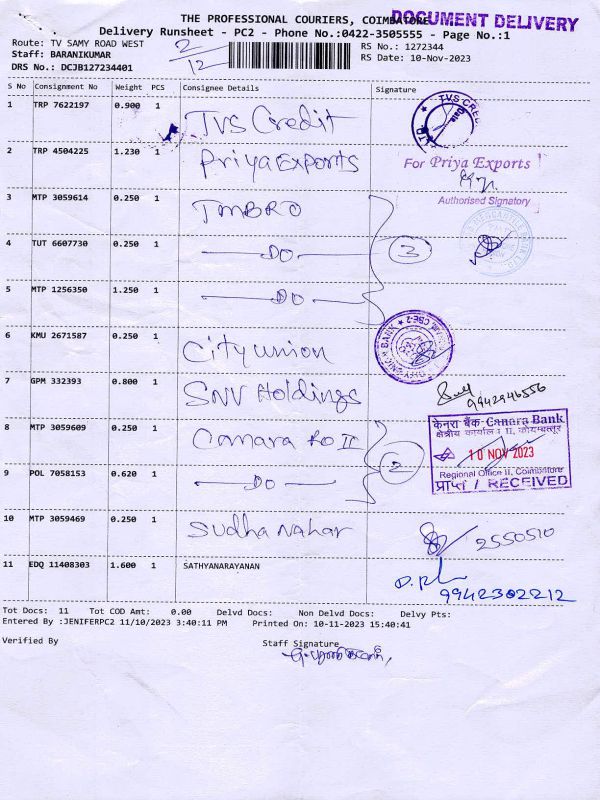 THE PROFESSIONAL COURIERS, COIMBATORE
DOCUMENT DELIVERY
Delivery Runsheet - PC2 - Phone No.:0422-3505555 - Page No.:1
Route: TV SAMY ROAD WEST 2/12 RS No.: 1272344
Staff: BARANIKUMAR RS Date: 10-Nov-2023
DRS No.: DCJB127234401
S No Consignment No Weight PCS Consignee Details Signature
1 TRP 7622197 0.900 1 TVS Credit
TVS CRE
2 TRP 4504225 1.230 1 Priya Exports
For Priya Exports
Authorised Signatory
3 MTP 3059614 0.250 1 TMBRO
4 TUT 6607730 0.250 1 DO 3
5 MTP 1256350 1.250 1 DO
6 KMU 2671587 0.250 1 City union
BANK CBE-2
7 GPM 332393 0.800 1 SNV Holdings
9942946556
8 MTP 3059609 0.250 1 Canara RO II
केनरा बैंक Canara Bank
क्षेत्रीय कार्यालय II, कोयम्बत्तूर
10 NOV 2023
Regional Office II, Coimbatore
प्राप्त / RECEIVED
9 POL 7058153 0.620 1 DO 2
10 MTP 3059469 0.250 1 Sudha Nahar 2550510
11 EDQ 11408303 1.600 1 SATHYANARAYANAN
9942302212
Tot Docs: 11 Tot COD Amt: 0.00 Delvd Docs: Non Delvd Docs: Delvy Pts:
Entered By :JENIFERPC2 11/10/2023 3:40:11 PM Printed On: 10-11-2023 15:40:41
Verified By Staff Signature